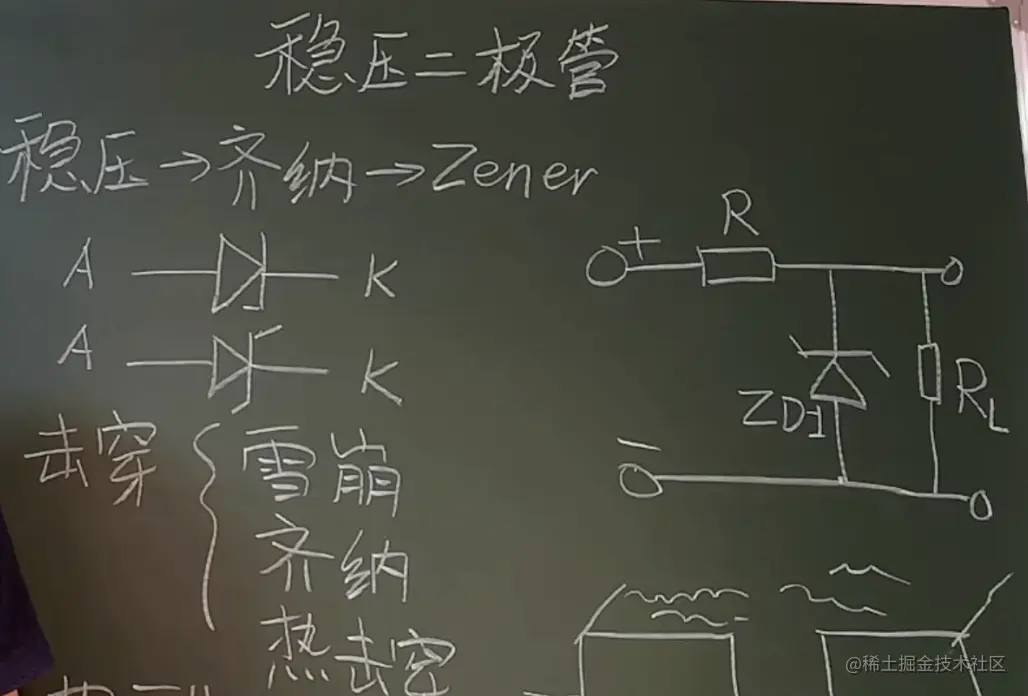 稳压二极管
稳压→齐纳→Zener
A K
A K
击穿
雪崩
齐纳
热击穿
R
+
ZD1
RL
−
@稀土掘金技术社区